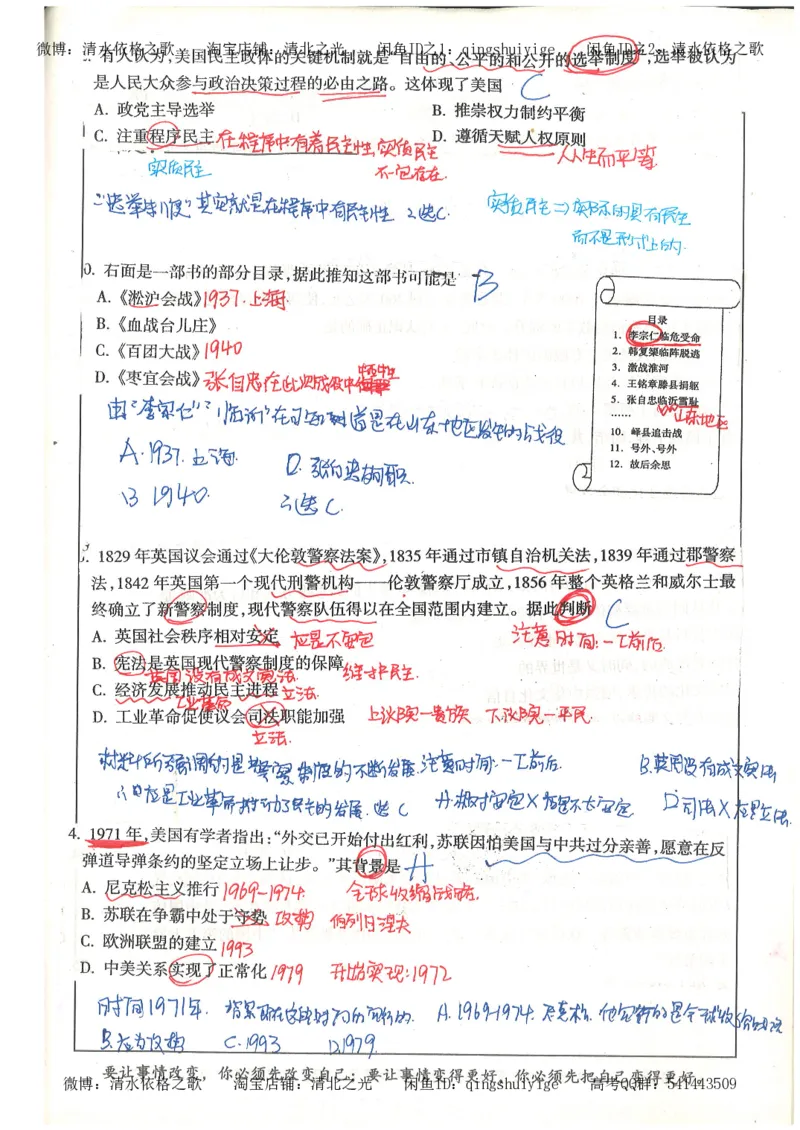 微博：清水依格之歌 淘宝店铺：清北之光 闲鱼ID之1：qingshuiyige 闲鱼ID之2：清水依格之歌
有人认为，美国民主政体的关键机制就是"自由的、公平的和公开的选举制度"，选举被认为
是人民大众参与政治决策过程的必由之路。这体现了美国 C
A. 政党主导选举 B. 推崇权力制约平衡
C. 注重程序民主 在程序中有着民主性,实质民主 D. 遵循天赋人权原则
人人生而平等.
实质民主 不包存在.
"选举制度"其实就是在程序中有民主性 ∴选C. 实质民主⇒实际的具有民主
而不是形式上的.
0. 右面是一部书的部分目录，据此推知这部书可能是 B
A.《淞沪会战》1937.上海
B.《血战台儿庄》
C.《百团大战》1940
D.《枣宜会战》张自忠在此次战役中牺牲
目录
1. 李宗仁临危受命
2. 韩复榘临阵脱逃
3. 激战淮河
4. 王铭章滕县捐躯
5. 张自忠临沂雪耻
……
山东地区
10. 峄县追击战
11. 号外、号外
12. 故后余思
由"李宗仁""临沂"在可知道是在山东地区发生的战役
A.1937.上海 D.张自忠
B 1940. ∴选C.
1829 年英国议会通过《大伦敦警察法案》，1835 年通过市镇自治机关法，1839 年通过郡警察
法，1842 年英国第一个现代刑警机构——伦敦警察厅成立，1856 年整个英格兰和威尔士最
终确立了新警察制度，现代警察队伍得以在全国范围内建立。据此判断 C
A. 英国社会秩序相对安定 应是不安定 注意时间:一工前后.
B. 宪法是英国现代警察制度的保障
英国没有成文宪法. 维护民主.
C. 经济发展推动民主进程 立法.
工业革命
D. 工业革命促使议会司法职能加强 上议院—贵族 下议院—平民
立法.
材料所强调的是警察制度的不断发展.注意时间:一工前后. B.英国没有成文宪法
∴C应是工业革命推动了民主的发展.选C A.相对安定X 应是不安定 D司法X应是立法.
4. 1971 年，美国有学者指出："外交已开始付出红利，苏联因怕美国与中共过分亲善，愿意在反
弹道导弹条约的坚定立场上让步。"其背景是 A
A. 尼克松主义推行 1969-1974. 全球收缩战略.
B. 苏联在争霸中处于守势 攻势 勃列日涅夫
C. 欧洲联盟的建立 1993
D. 中美关系实现了正常化 1979 开始实现:1972
时间1971年. A.1969-1974.尼克松.他实行的是全球收缩战略
B.应为攻势 C.1993 D.1979.
要让事情改变，你必须先改变自己；要让事情变得更好，你必须先把自己变得更好。
微博：清水依格之歌 淘宝店铺：清北之光 闲鱼ID：qingshuiyige 高考QQ群：541443509